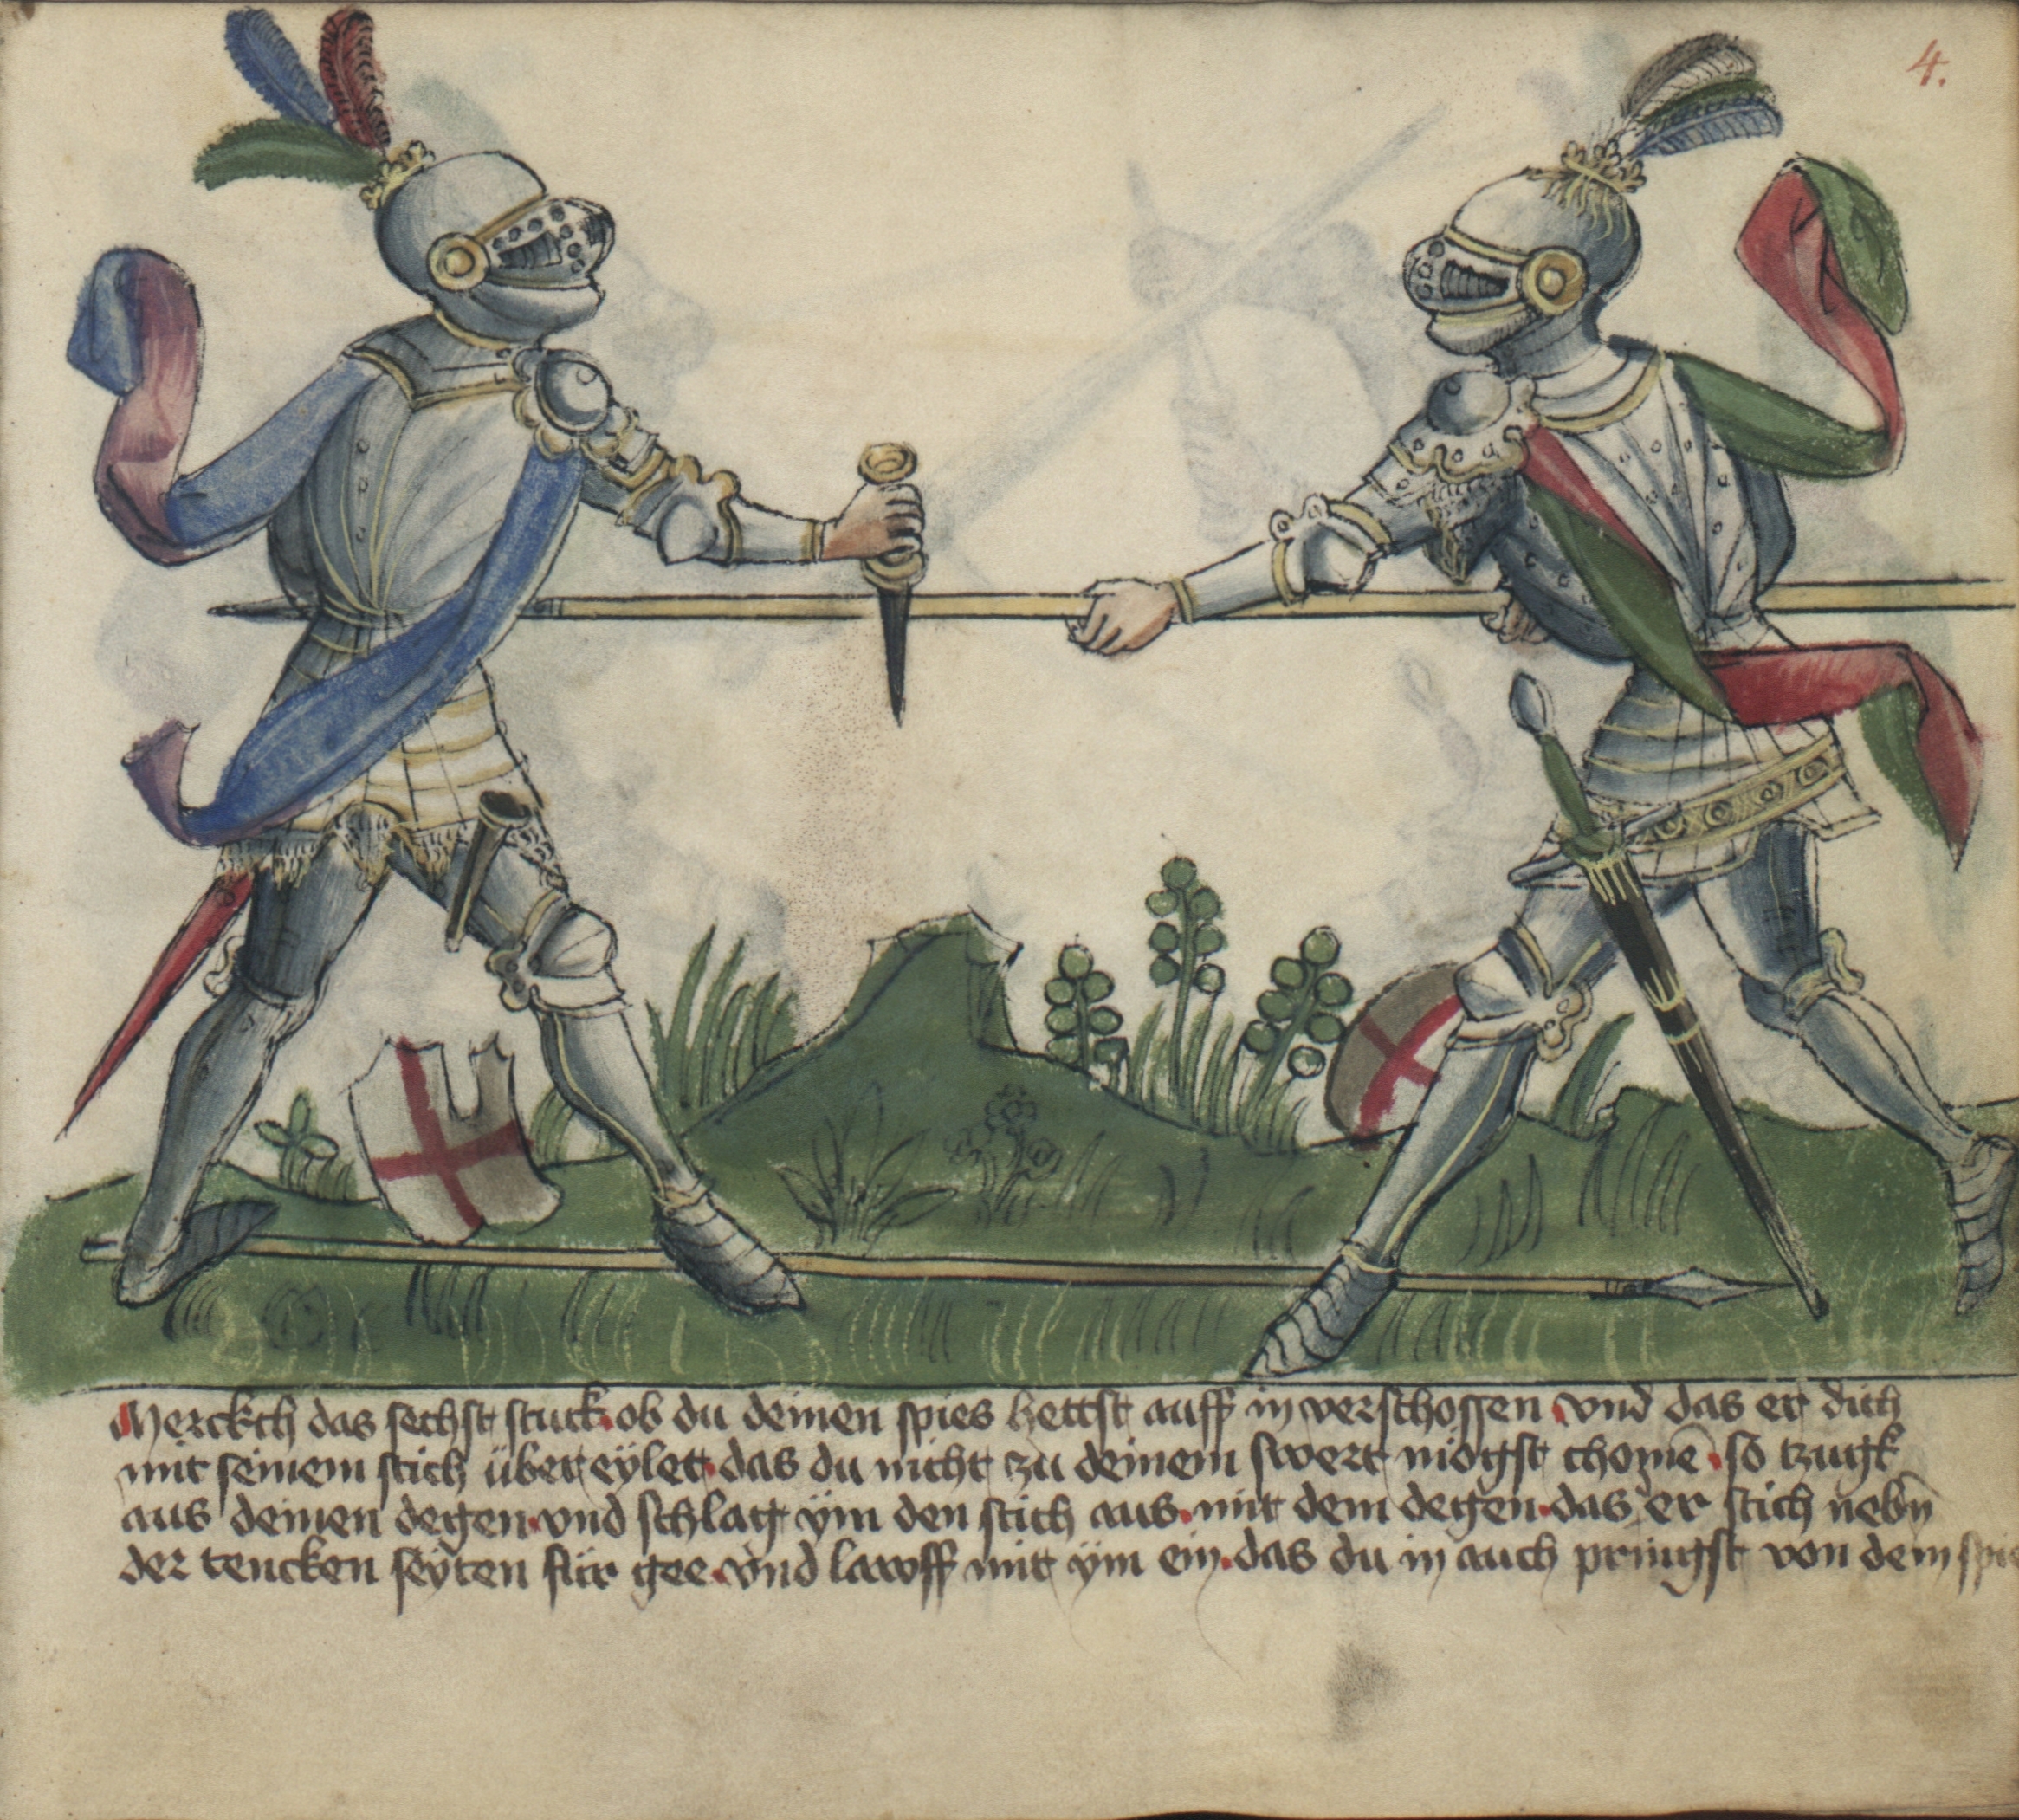 4.
Merckch das sechst stuck. ob du deinen spies hettst auff in verschossen. vnd das er dich
mit seinem stich über eylet. das du nicht zu deinem swert mögst chomē. so tzugk
aus deinen degen. vnd schlag ÿm den stich aus. mit dem degen. das er stich nebn̄
der tencken seÿten für gee. vnd lawff mit ÿm ein. das du in auch pringst von dem spie